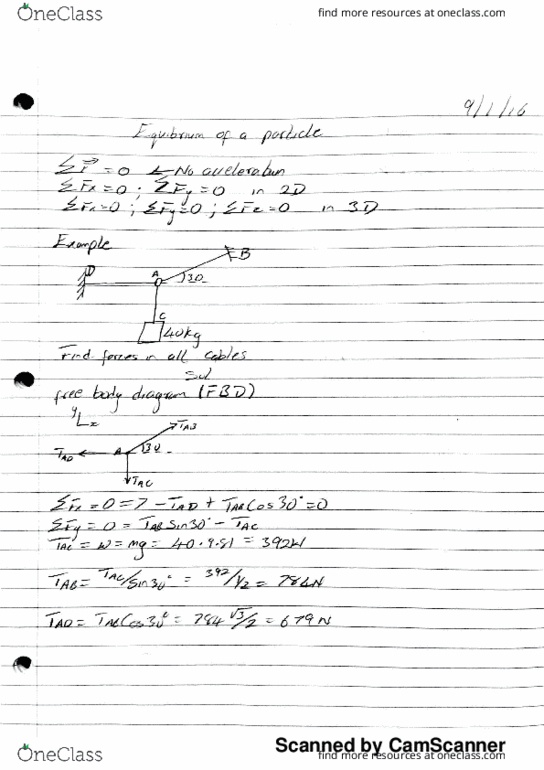 OneClass
find more resources at oneclass.com
9/1/16
Equibrium of a particle
ΣF⃗ = 0 ← No aceleration
ΣFx=0 ; ΣFy=0 in 2D
ΣFx=0 ; ΣFy=0 ; ΣFz=0 in 3D
Example
D
A
B
30
C
40kg
Find forces in all cables
Sol
free body diagram (FBD)
y
x
TAB
TAD
A
30
TAC
ΣFx = 0 => -TAD + TABCos30°=0
ΣFy = 0 = TABSin30° - TAC
TAC = W = mg = 40 · 9.81 = 392N
TAB = TAC/Sin30° = 392/1/2 = 784N
TAD = TABCos30° = 784 √3/2 = 679N
Scanned by CamScanner
OneClass
find more resources at oneclass.com